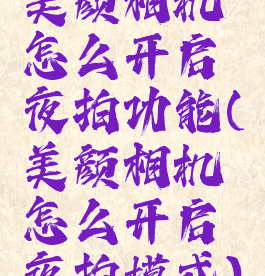 美颜相机
怎么开启
夜拍功能(
美颜相机
怎么开启
夜拍模式)